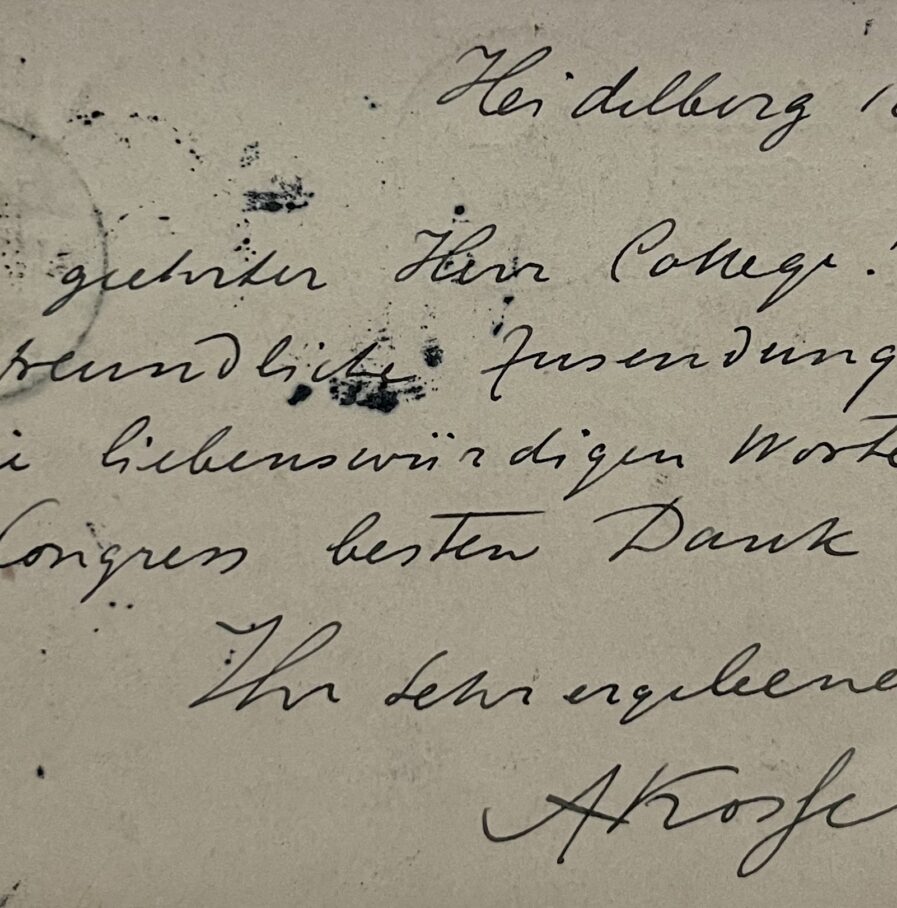 Heidelberg 1
geehrter Herr College!
freundliche Zusendung
liebenswürdigen Worte
Congress besten Dank
Ihr sehr ergebene
A Kosse